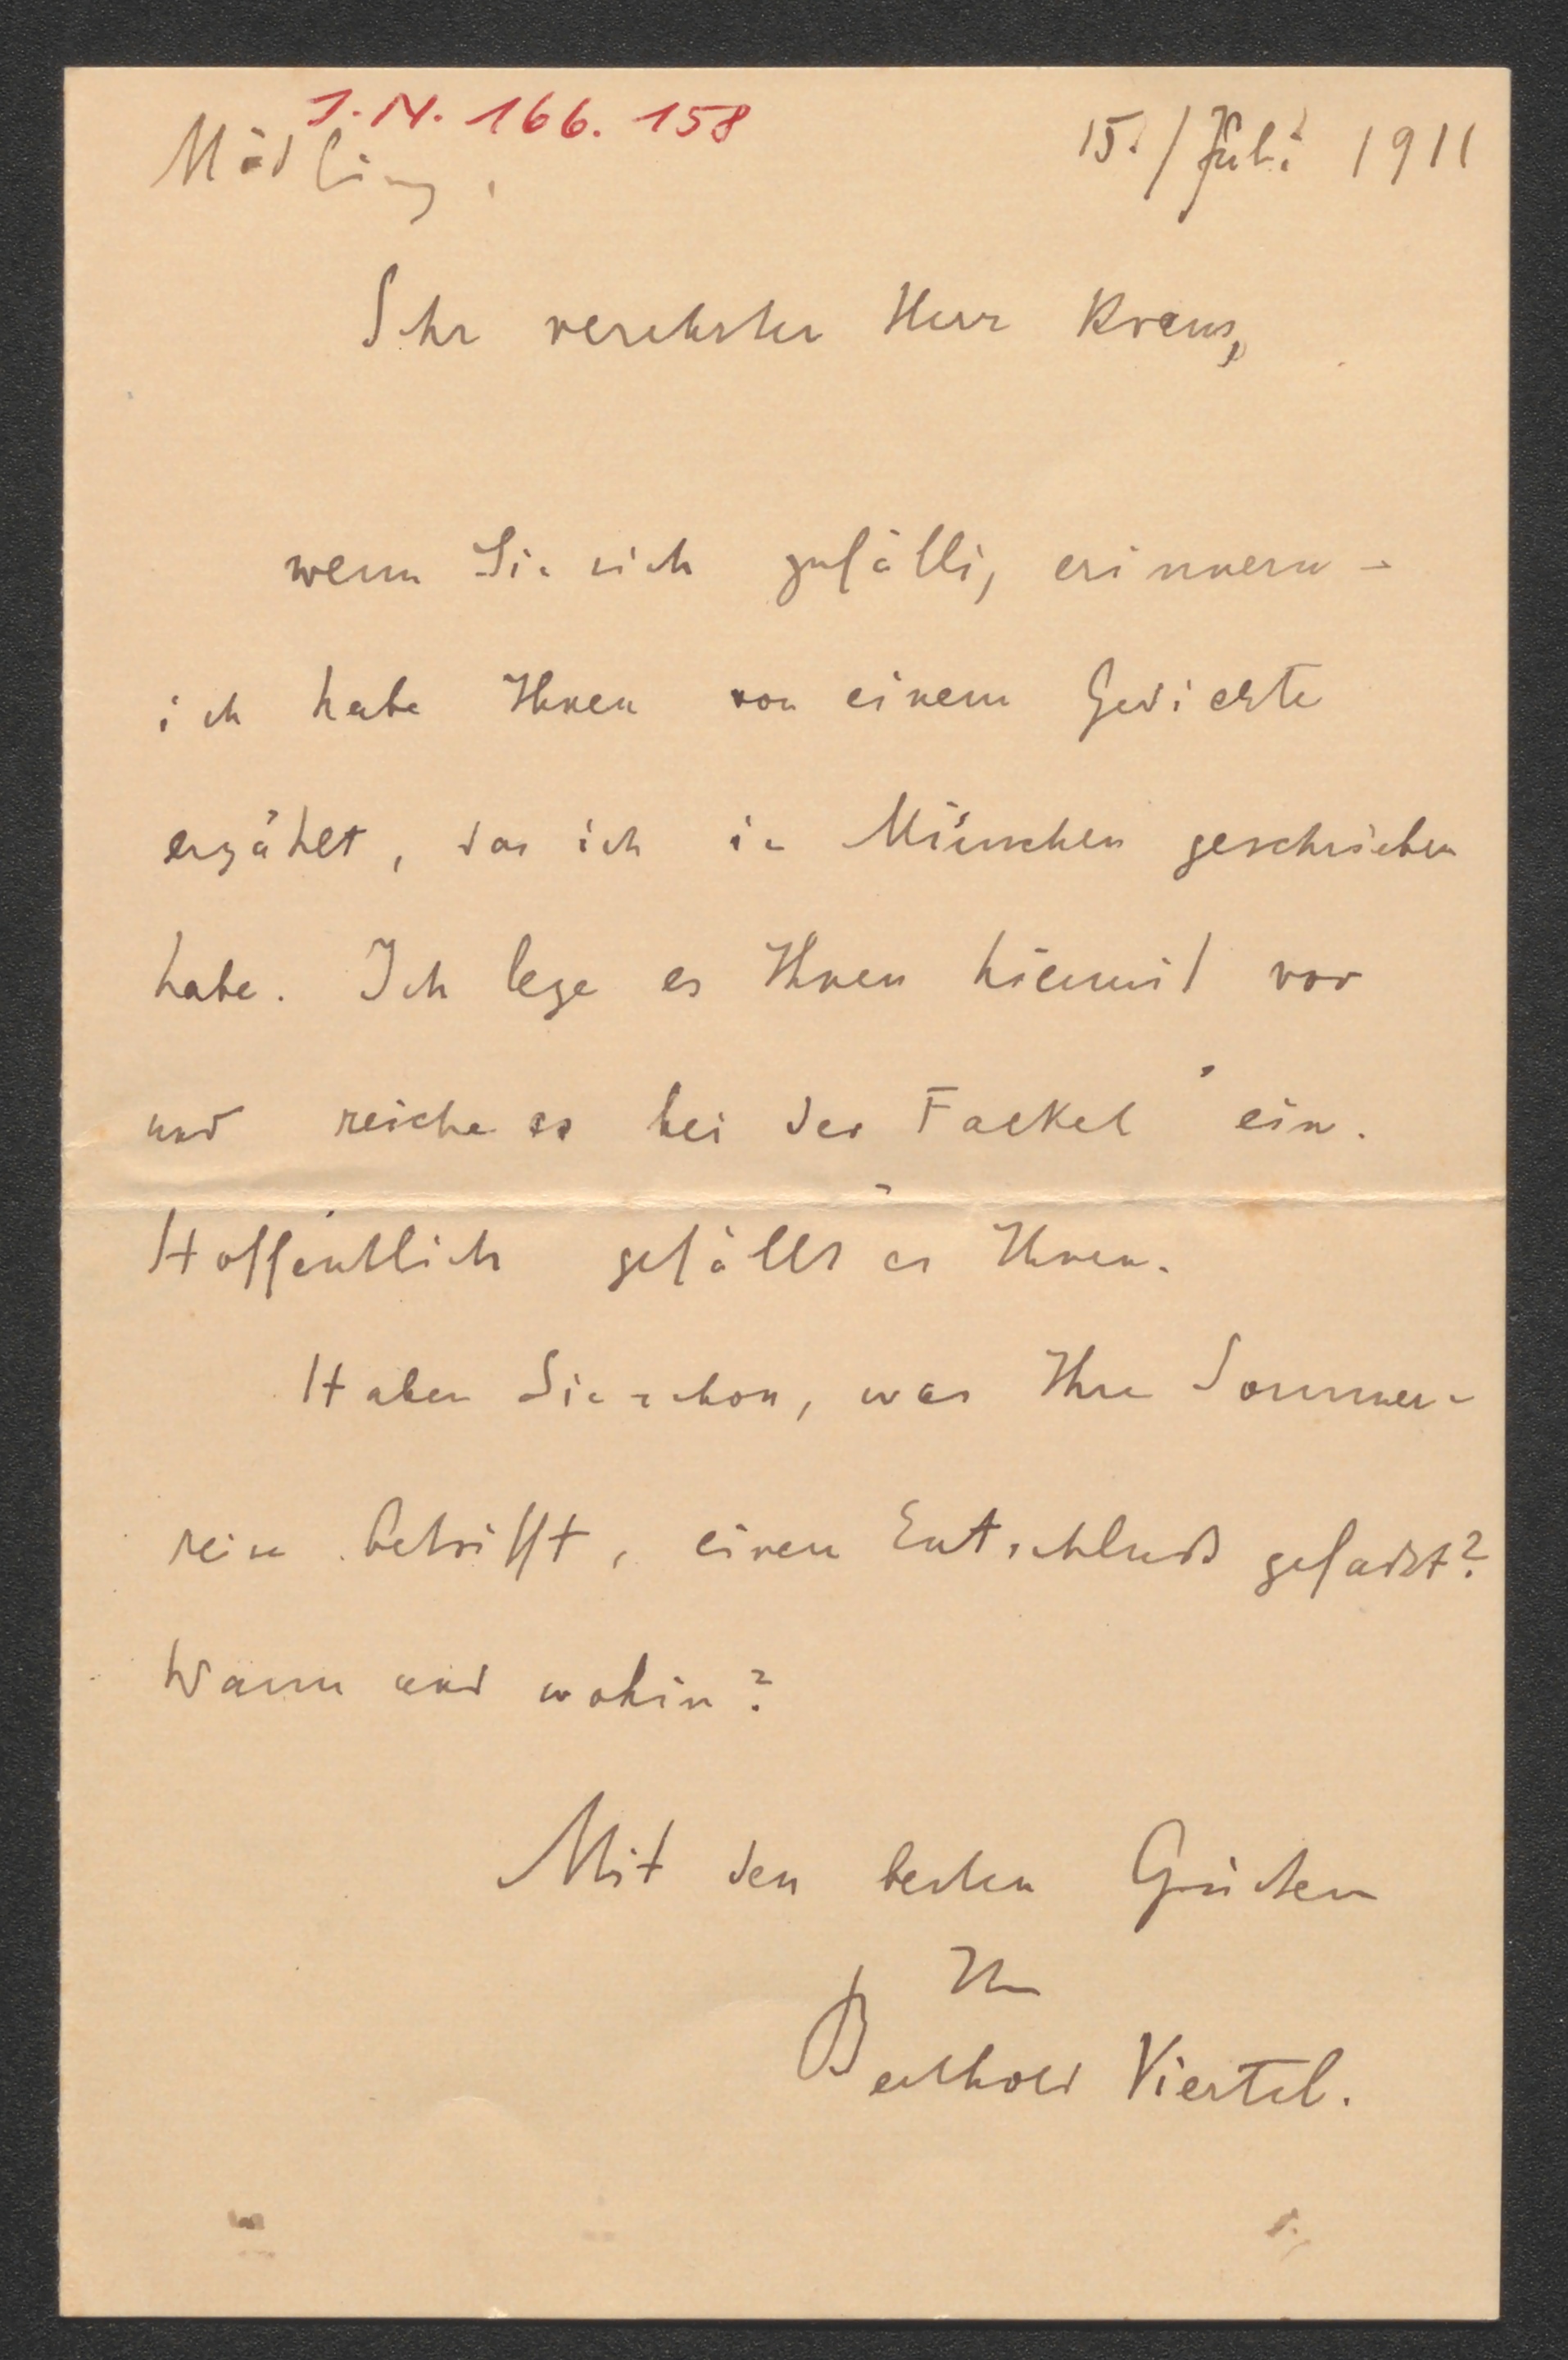 J. N. 166. 158
Mödling, 15./Juli 1911
Sehr verehrter Herr Kraus,
wenn Sie sich zufällig erinnern –
ich habe Ihnen von einem Gedichte
erzählt, das ich in München geschrieben
habe. Ich lege es Ihnen hiermit vor
und reiche es bei der Fackel ein.
Hoffentlich gefällt es Ihnen.
Haben Sie schon, was Ihre Sommer-
reise betrifft, einen Entschluß gefaßt?
Wann und wohin?
Mit den besten Grüßen
Ihr
Berthold Viertel.